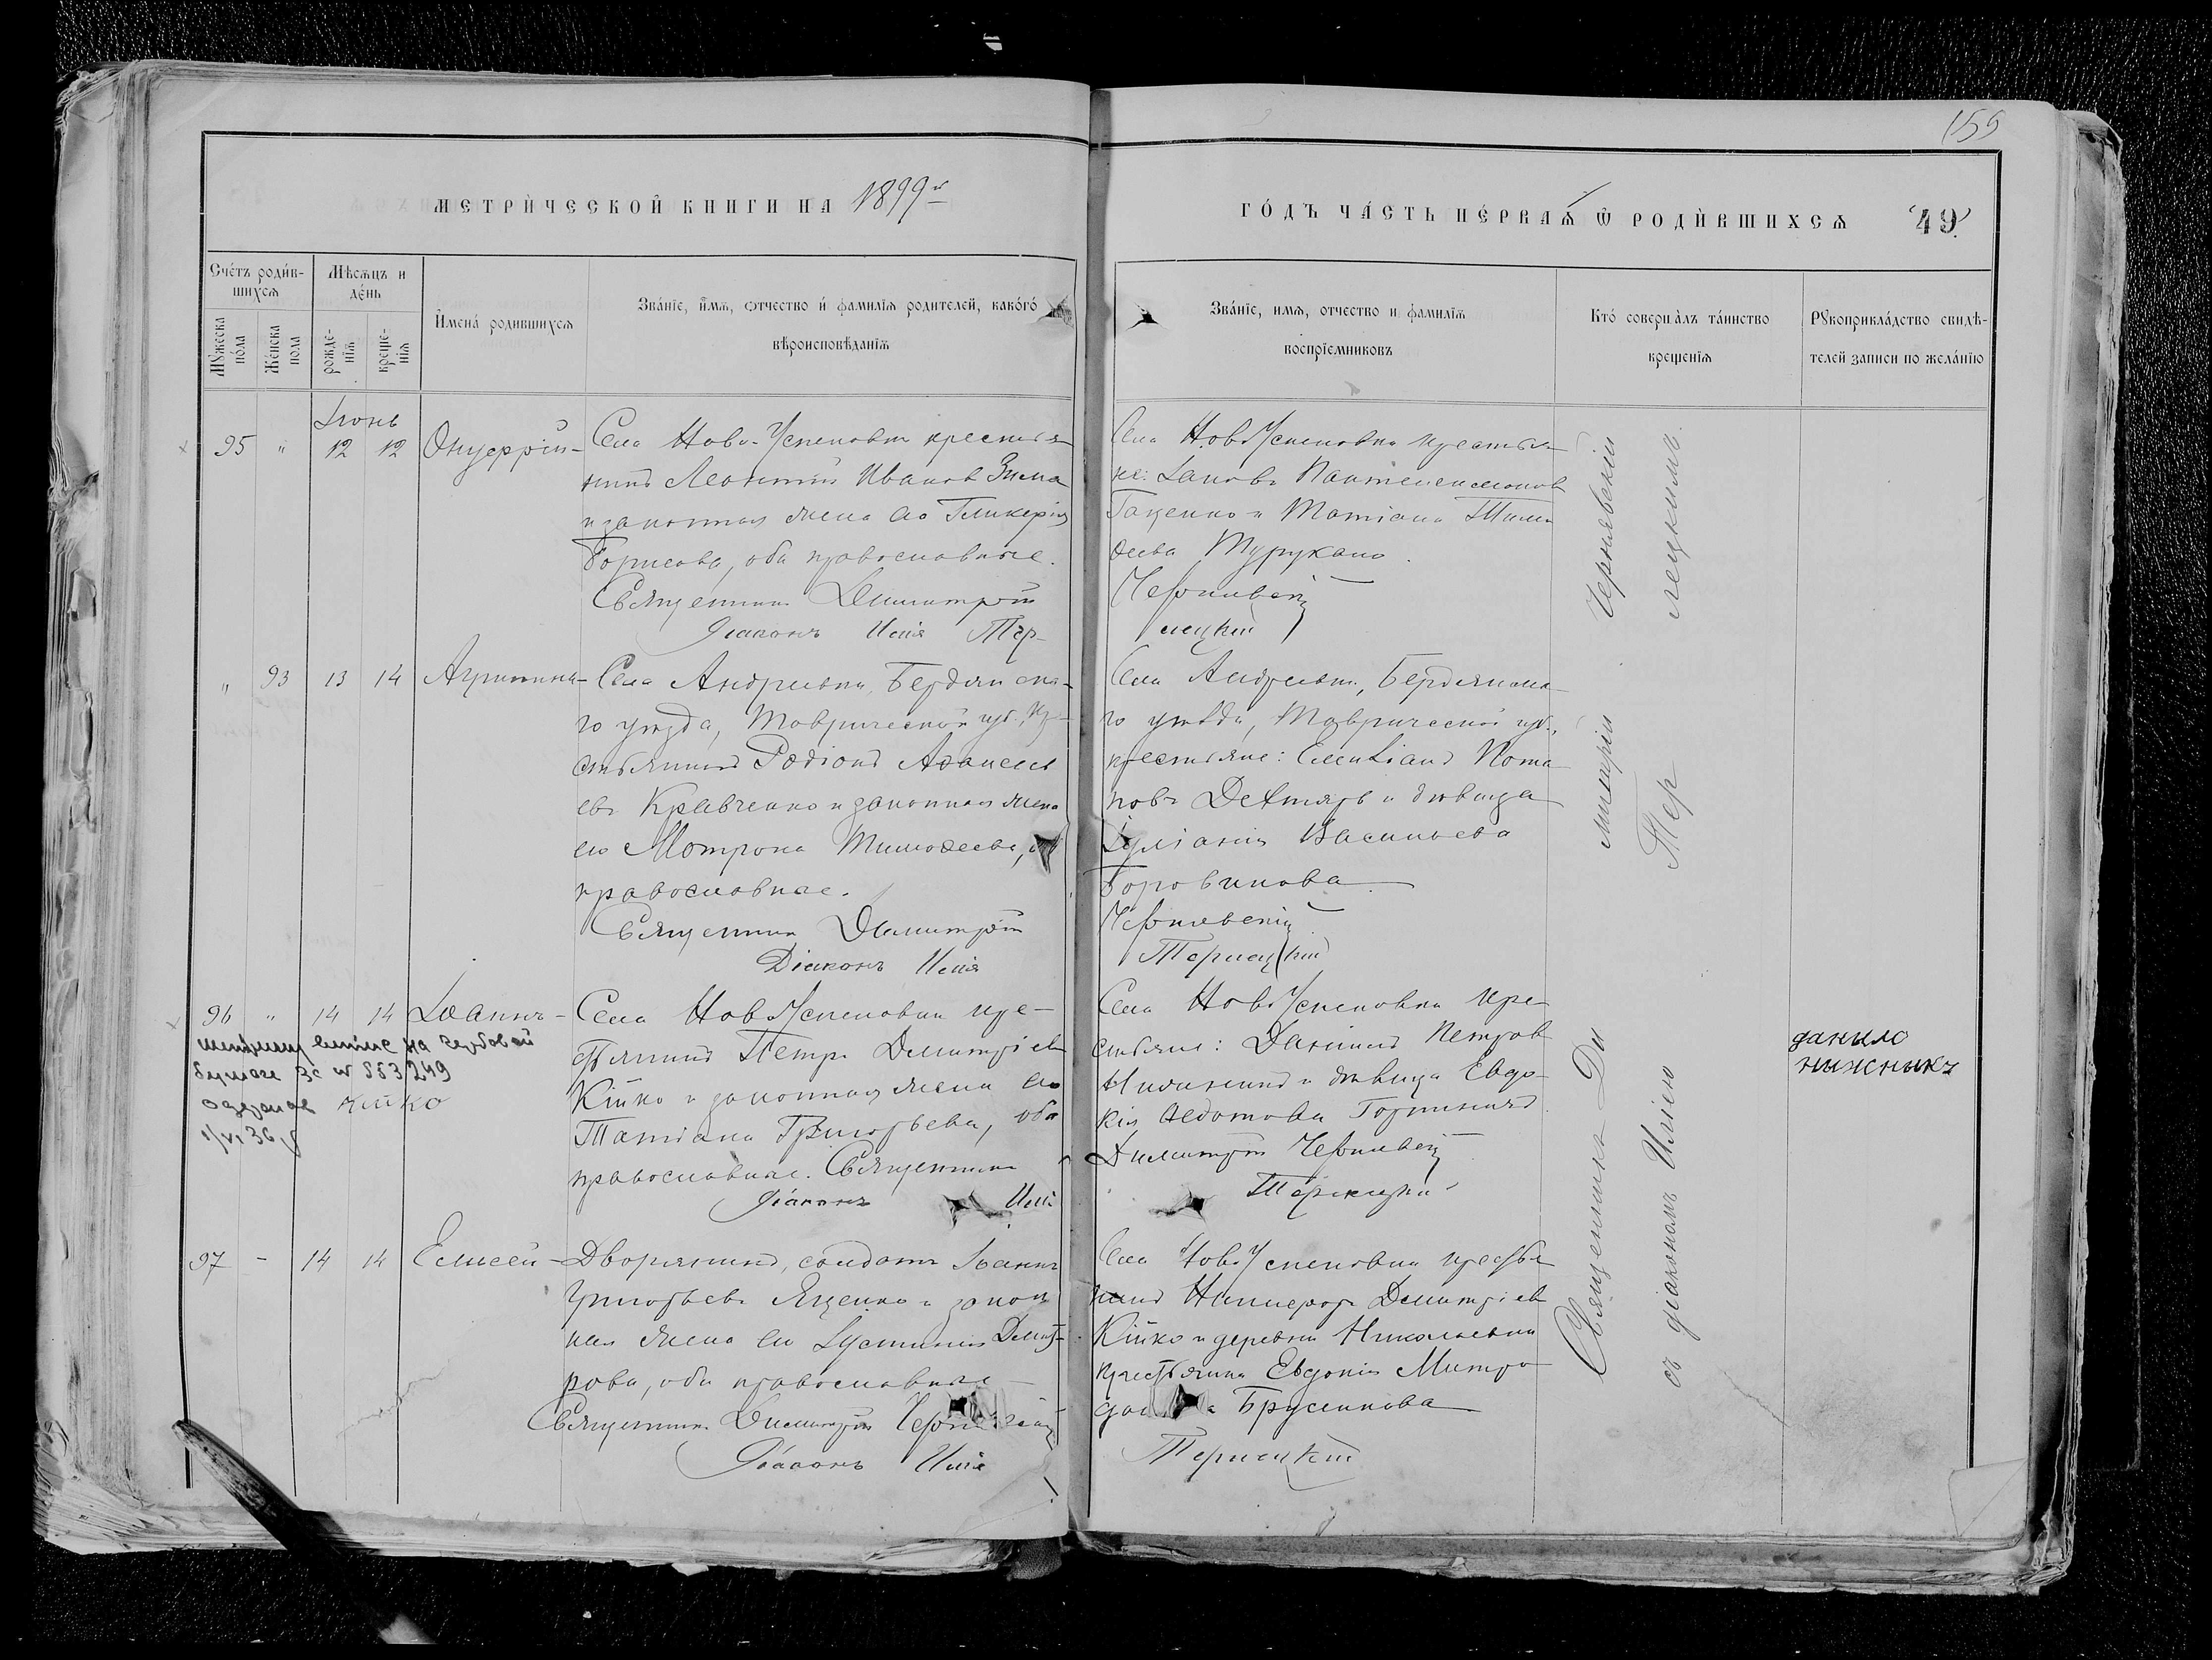 155
МЕТРИЧЕСКОЙ КНИГИ НА 1899й
ГОДЪ ЧАСТЬ ПЕРВАЯ Ѡ РОДИВШИХСЯ 49
Счетъ родив-
шихся
Мѣсяцъ и
день
Мужеска
пола
Женска
пола
рожде-
нія
креще-
нія
Имена родившихся
Званіе, имя, отчество и фамилія родителей, какого
вѣроисповѣданія
Званіе, имя, отчество и фамилія
воспріемниковъ
Кто совершалъ таинство
крещенія
Рукоприкладство свидѣ-
телей записи по желанію
Іюнь
95 " 12 12 Онуфрій -
Села Ново-Успеновки крестья
нинъ Леонтій Иванов Зима
и законная жена его Гликерія
Борисова, оба православные.
Священникъ Димитрій
Діаконъ Илія Тер-
Села НовоУспеновки крестья
не: Іаковъ Пантелеимонов
Гаценко и Татіана Тимо
ѳеева Турукало.
Чернявскій
лецкій
" 93 13 14 Агрипина -
Села Андреевки, Бердянска-
го уѣзда, Таврической губ., кр-
естьянинъ Родіонъ Аѳанасье
въ Кравченко и законная жена
его Мотрона Тимоѳеева,
православные.
Священникъ Димитрій
Діаконъ Илія
Села Андреевки, Бердянска-
го уѣзда, Таврической губ.,
крестьяне: Емеліанъ Пота
повъ Дехтярь и дѣвица
Іуліанія Васильева
Боровикова
Чернявскій
Терлецкій
96 " 14 14 Іоаннъ -
Села НовоУспеновки кре-
стьянинъ Петръ Димитріев
Кійко и законная жена его
Татіана Григорьева, оба
православные. Священникъ
Діаконъ Илія
Села НовоУспеновки кре-
стьяне: Даніилъ Петров
Нижникъ и дѣвица Евдо-
кія Ѳедотова
Димитрій Чернявскій
Терлецкій
даныло
ныжныкъ
на гербовой
бумаге за № 553/249
Кийко
97 - 14 14 Елисей -
Дворянинъ, солдатъ Іоаннъ
Григорьевъ Яценко и закон
ная жена его Іустинія Димит-
рова, оба православные
Священникъ Димитрій
Діаконъ Илія
Села НовоУспеновки крестья
нинъ Никифоръ Димитріев
Кійко и деревни Николаевки
крестьянка Евдокія Митро
Брусникова
Терлецкій
Священникъ Ди митрій Чернявскій
съ діакономъ Иліею Тер лецкимъ.